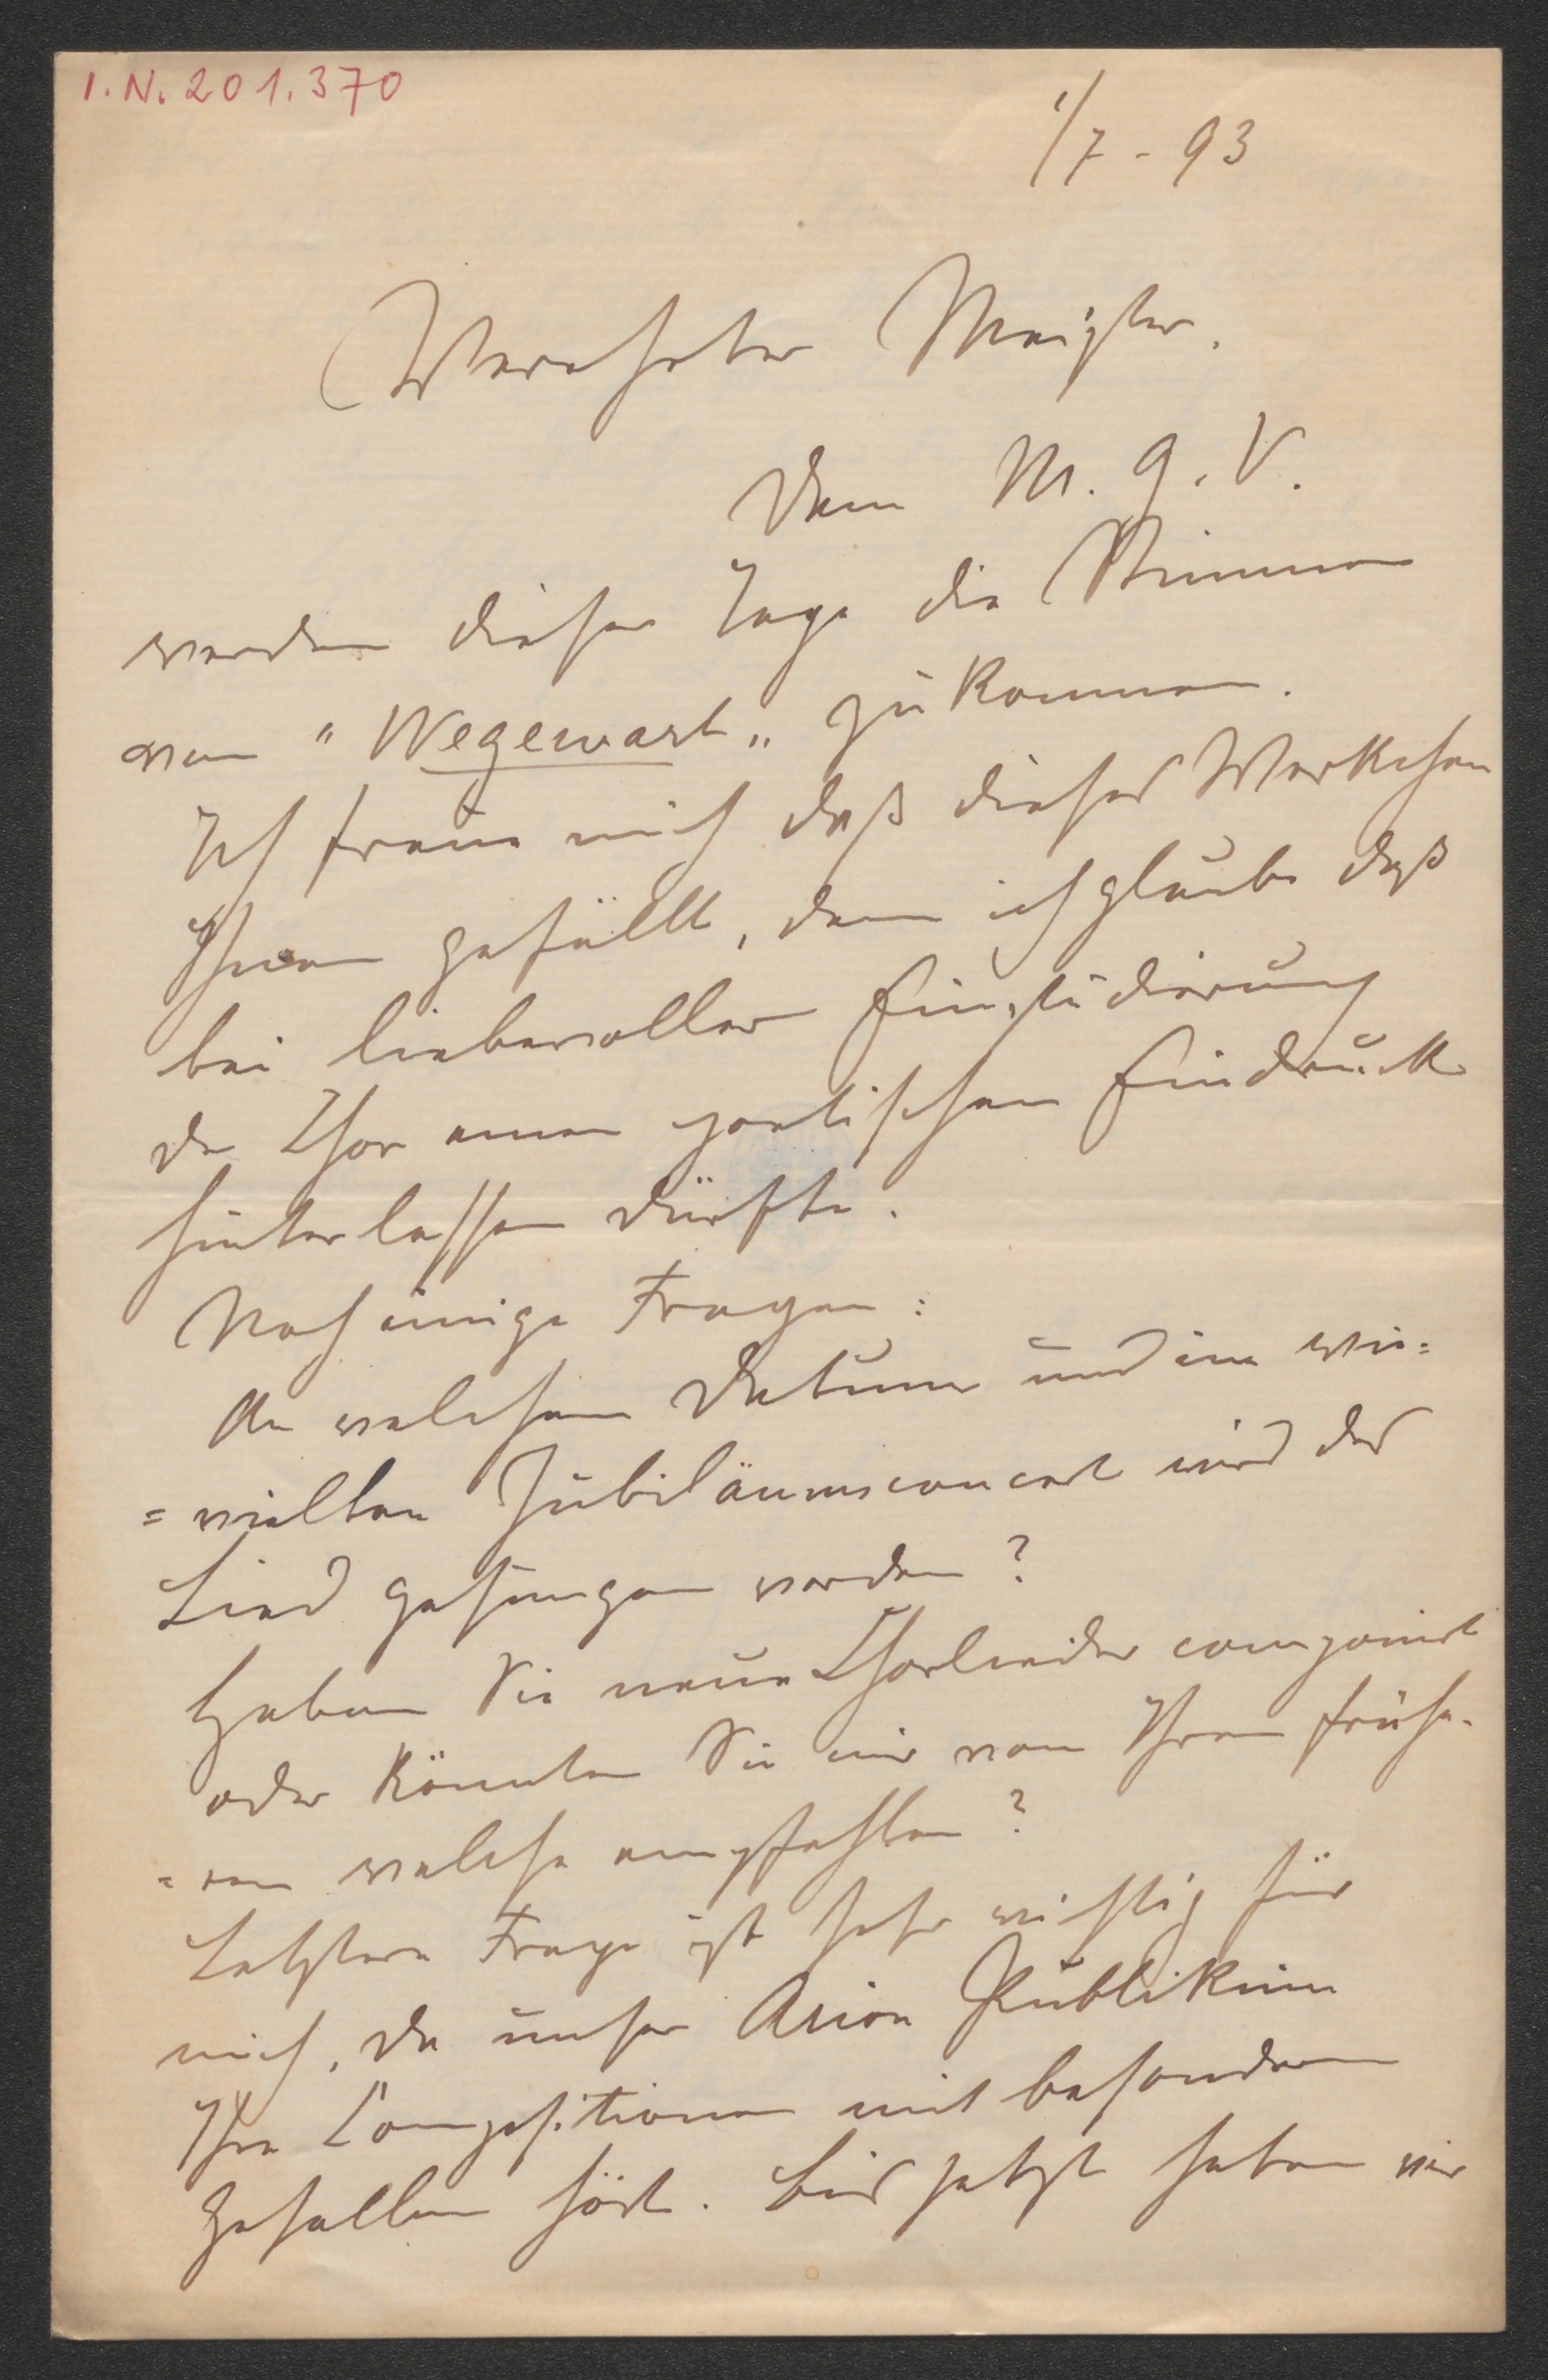 I.N. 201.370
1/7 - 93
Verehrter Meister.
Dem M. G. V.
werden dieser Tage die Stimmen
von "Wegewart" zukommen.
Ich freue mich daß dieses Werkchen
Ihnen gefällt, denn ich glaube daß
bei liebevoller Einstudierung
der Chor einen poetischen Eindruck
hinterlassen dürfte.
Noch einige Fragen:
An welchem Datum und im wie=
=vielten Jubiläumsconcert wird das
Lied gesungen werden?
Haben Sie neue Chorlieder componirt
oder könnten Sie mir von Ihren frühe-
=ren welche empfehlen?
Letztere Frage ist sehr wichtig für
mich, da unser Arion Publikum
Ihre Compositionen mit besonderem
Gefallen hört. Bis jetzt haben wir